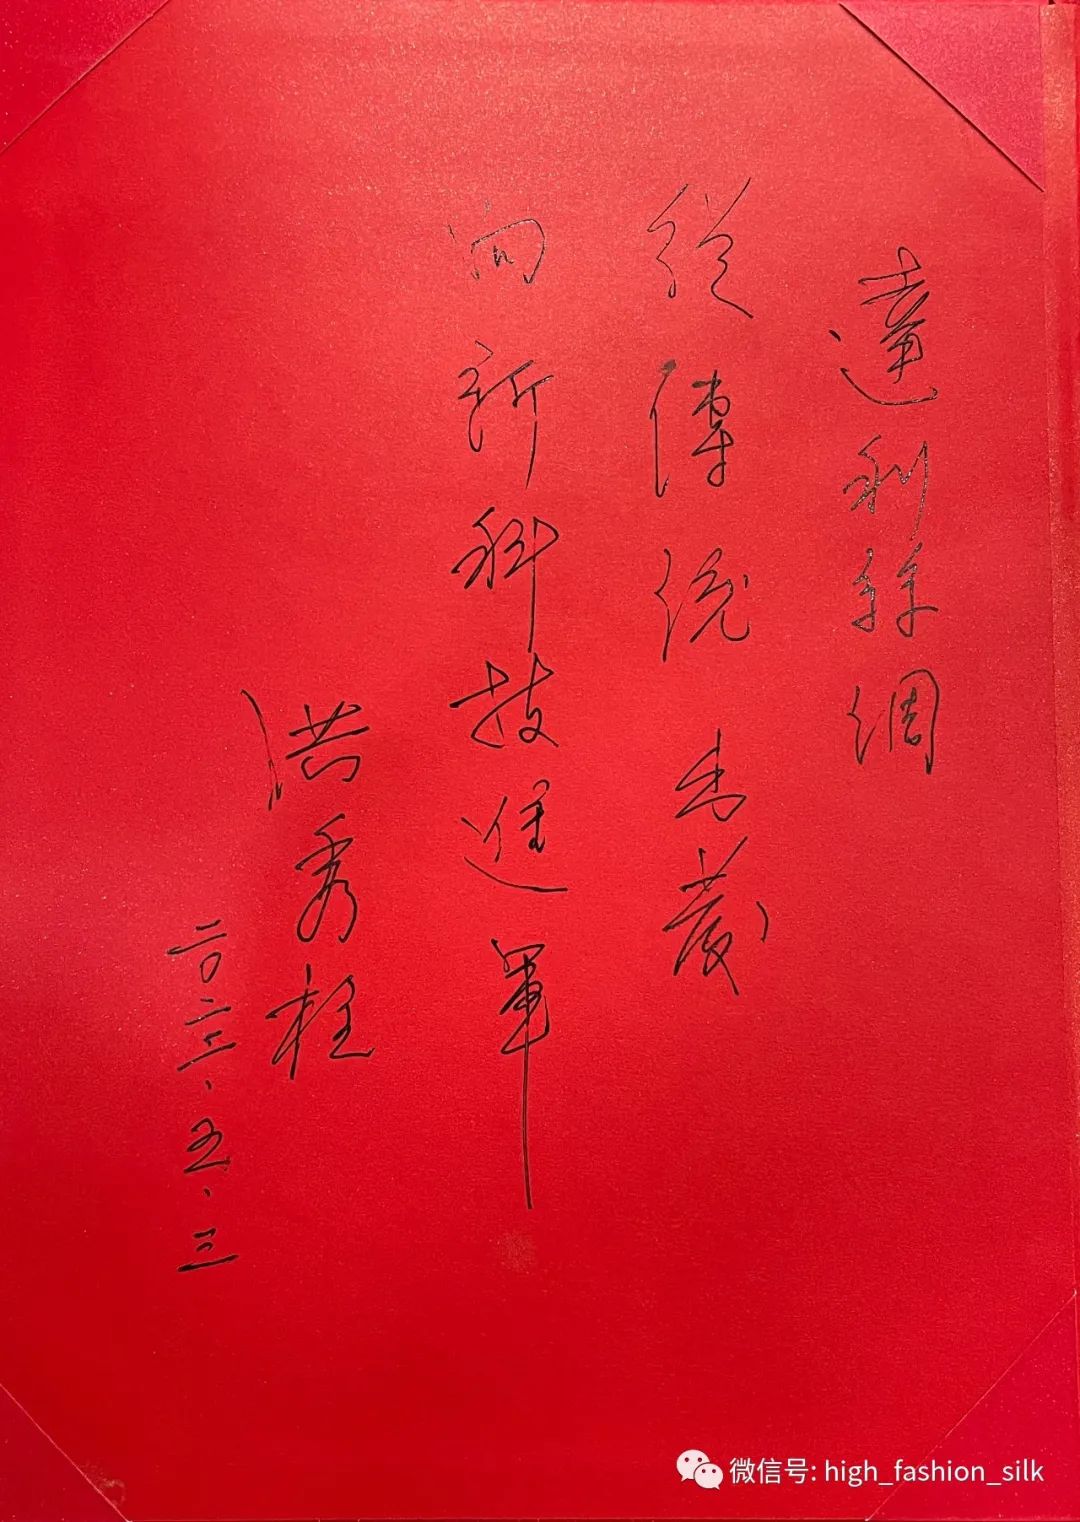 達利絲綢
從傳統出發
向新科技進軍
洪秀柱
二〇二三、五、三
微信号: high_fashion_silk